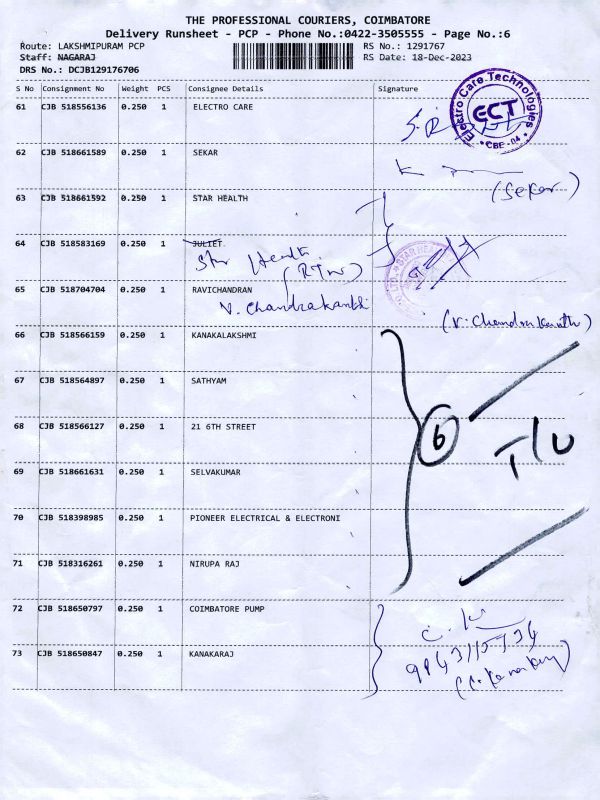 THE PROFESSIONAL COURIERS, COIMBATORE
Delivery Runsheet - PCP - Phone No.:0422-3505555 - Page No.:6
Route: LAKSHMIPURAM PCP RS No.: 1291767
Staff: NAGARAJ RS Date: 18-Dec-2023
DRS No.: DCJB129176706
S No Consignment No Weight PCS Consignee Details Signature
61 CJB 518556136 0.250 1 ELECTRO CARE
Electro Care Technologies
ECT
CBE-04
62 CJB 518661589 0.250 1 SEKAR
(Sekar)
63 CJB 518661592 0.250 1 STAR HEALTH
64 CJB 518583169 0.250 1 JULIET
Star Health
STAR HEA
65 CJB 518704704 0.250 1 RAVICHANDRAN
V. Chandrakanth
(V. Chandrakanth)
66 CJB 518566159 0.250 1 KANAKALAKSHMI
67 CJB 518564897 0.250 1 SATHYAM
68 CJB 518566127 0.250 1 21 6TH STREET
6 T/U
69 CJB 518661631 0.250 1 SELVAKUMAR
70 CJB 518398985 0.250 1 PIONEER ELECTRICAL & ELECTRONI
71 CJB 518316261 0.250 1 NIRUPA RAJ
72 CJB 518650797 0.250 1 COIMBATORE PUMP
73 CJB 518650847 0.250 1 KANAKARAJ